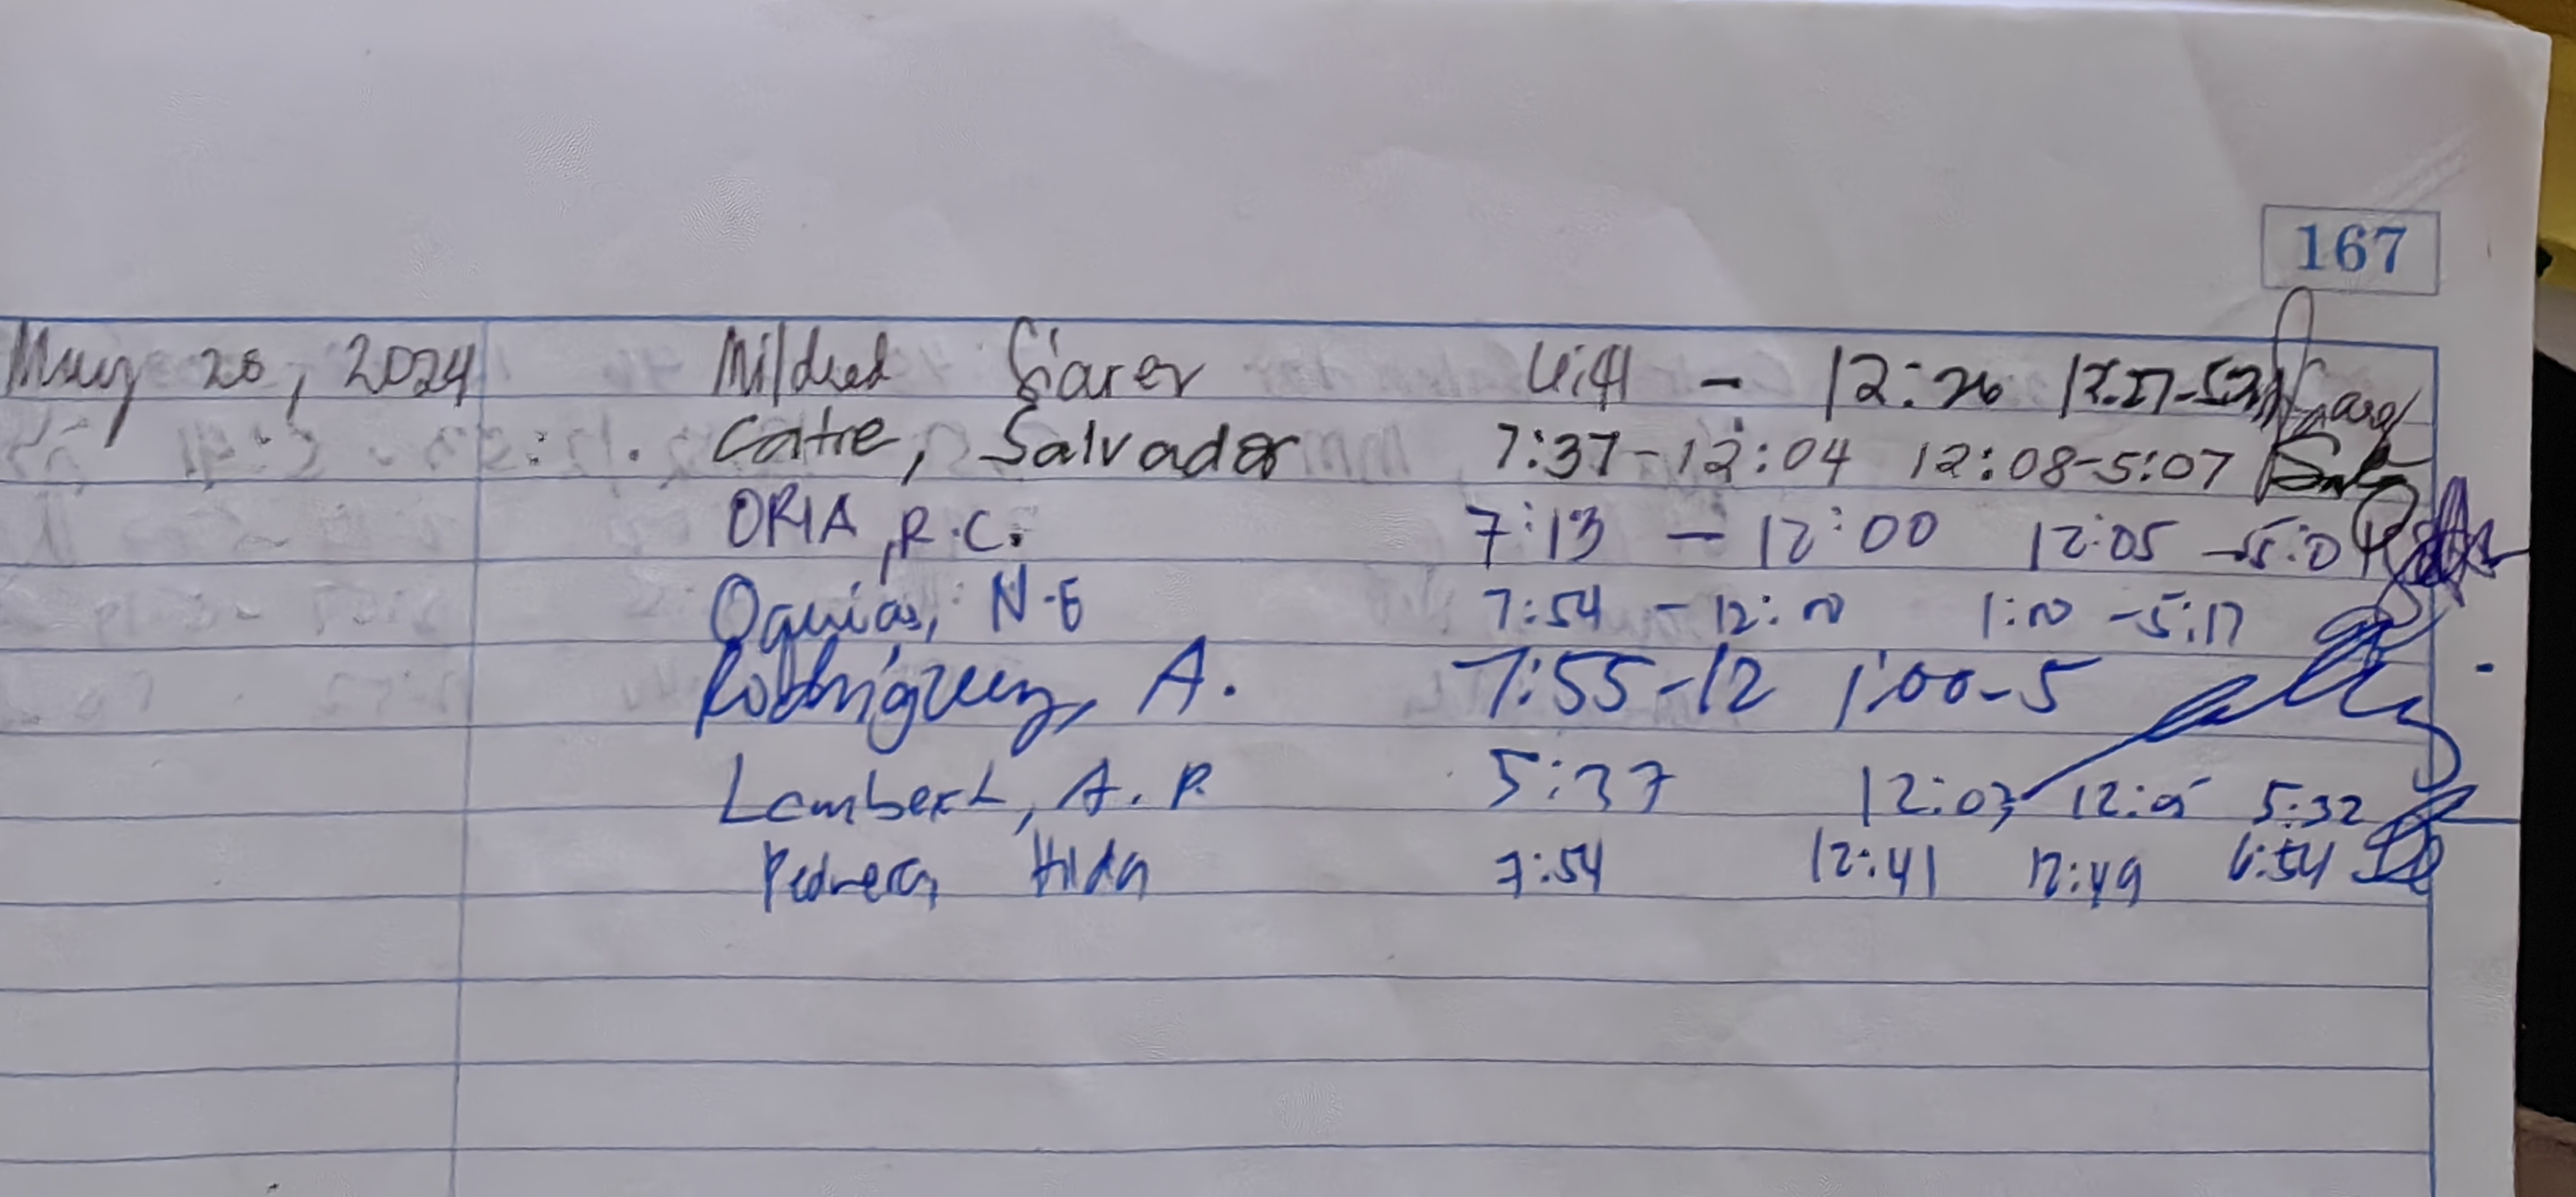 167
May 28, 2024 Mildred 12:26
Catre, Salvador 7:37-12:04 12:08-5:07
ORIA, R.C. 7:13 - 12:00 12:05
Oquias, N.E 7:54 - 12:10 1:10 - 5:17
Rodriguez, A. 7:55-12 1:00-5
Lambert, A. P. 5:37 12:03 12:05 5:32
Pedrera, Hilda 7:54 12:41 12:49 6:54